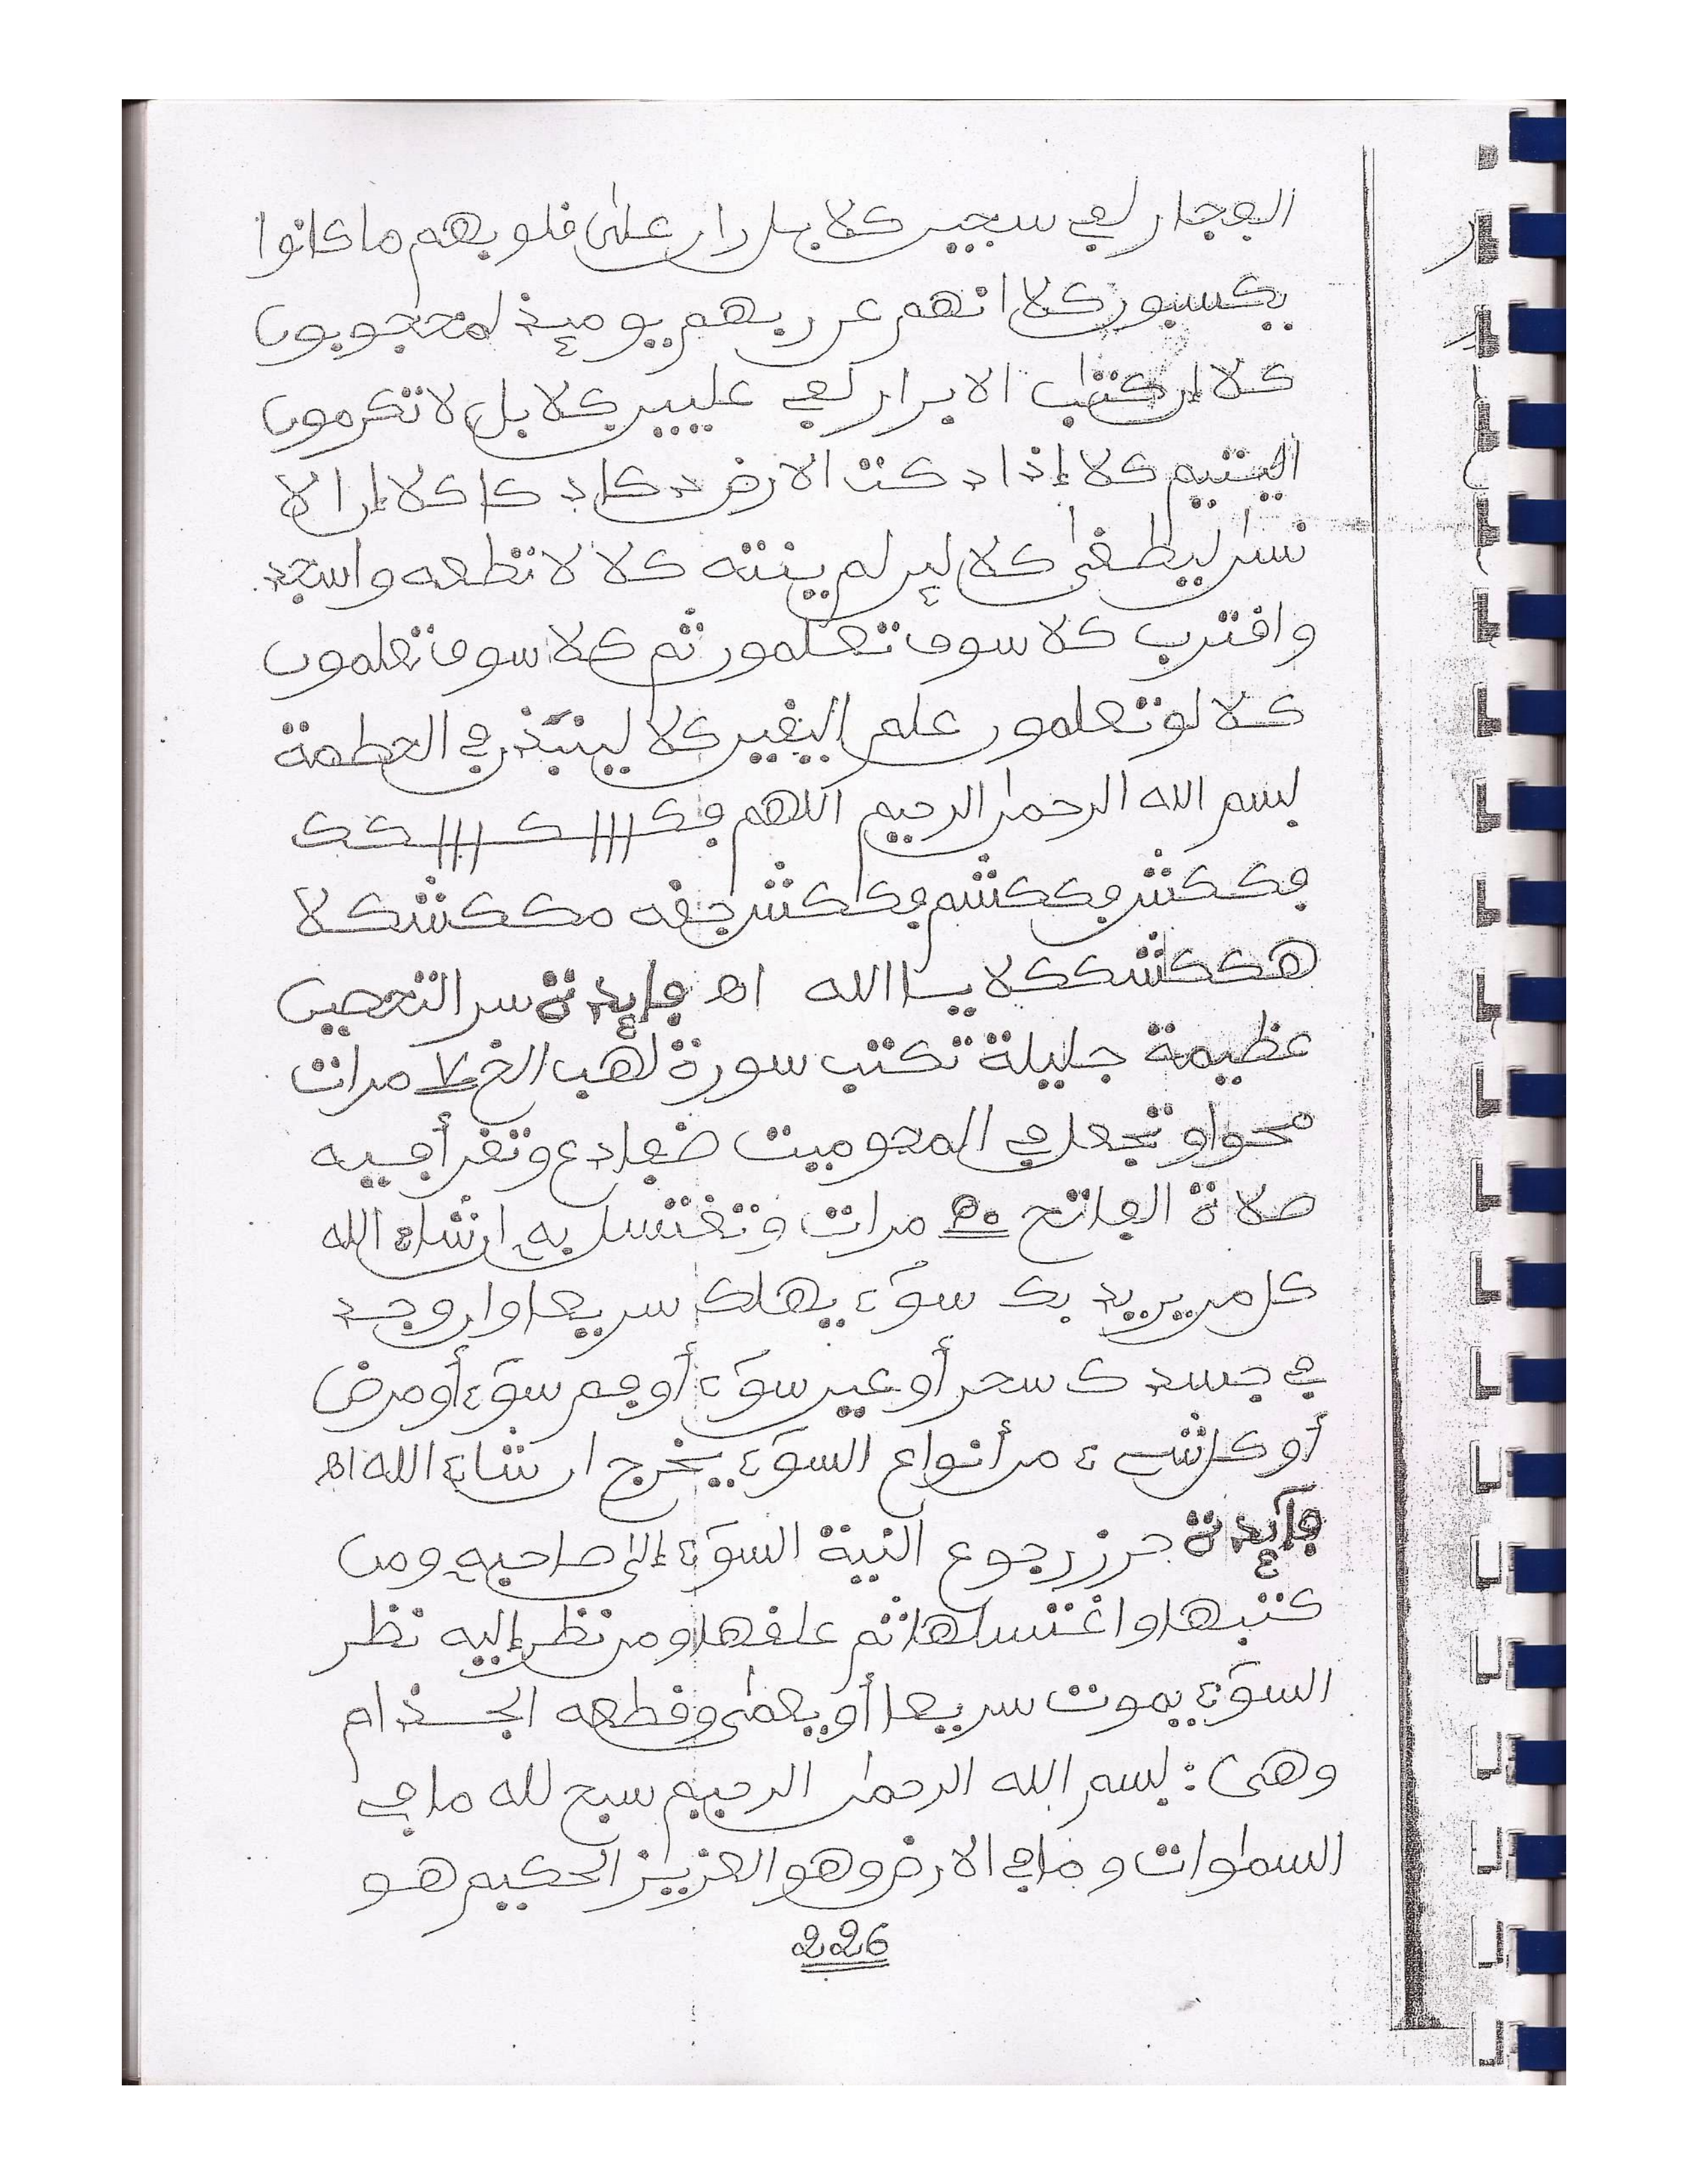 الفجار لفي سجين كلا بل ران على قلوبهم ما كانوا
يكسبون كلا انهم عن ربهم يومئذ لمحجوبون
كلا إن كتاب الابرار لفي عليين كلا بل لا تكرمون
اليتيم كلا إذا دكت الارض دكا دكا كلا إن الا
نسان ليطغى كلا لين لم ينته كلا لا تطعه واسجد
واقترب كلا سوف تعلمون ثم كلا سوف تعلمون
كلا لو تعلمون علم اليقين كلا لينبذن في الحطمة
بسم الله الرحمن الرحيم اللهم
يا الله اه فايدة سر التحصين
عظيمة جليلة تكتب سورة لهب الخ ٧ مرات
محوا وتجعل في المحو ميت ضفادع وتقرأ فيه
صلاة الفاتح ٥٠ مرات وتغتسل به إن شاء الله
كل من يريد بك سوء يهلك سريعا وان وجد
في جسدك سحر أو عين سوء أو فم سوء أو مرض
أو كل شيء من أنواع السوء يخرج ان شاء الله اه
فايدة حرز رجوع النية السوء إلى صاحبه ومن
كتبها واغتسلها ثم علقها ومن نظر إليه نظر
السوء يموت سريعا أو يعمى وقطعه الجذام
وهي : بسم الله الرحمن الرحيم سبح لله ما في
السماوات وما في الارض وهو العزيز الحكيم هو
226